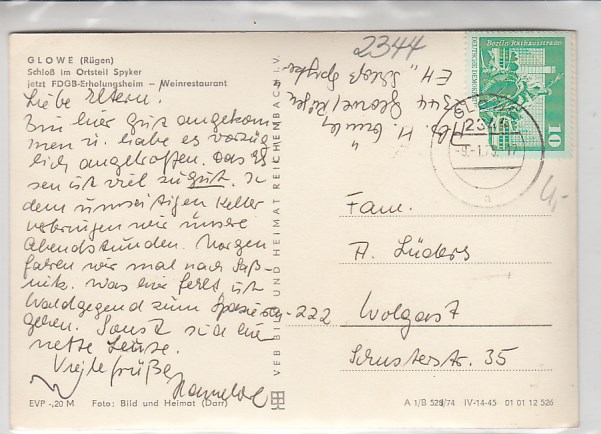 GLOWE (Rügen)
Schloß im Ortsteil Spyker
jetzt FDGB-Erholungsheim – Weinrestaurant
Liebe Eltern!
Bin hier gut angekom-
men u. habe es vorzüg-
lich angetroffen. Das Es-
sen ist viel zu gut. In
dem unseitigen Keller
verbringen wir unsere
Abendstunden. Morgen
fahren wir mal nach Saß-
nitz. Was hier fehlt ist
Waldgegend zum Spazieren-
gehen. Sonst sind hier
nette Leute.
Viele Grüße
Hannelore
EVP -,20 M Foto: Bild und Heimat (Darr)
VEB BILD UND HEIMAT REICHENBACH I. V.
2344
Abs. H.
2344 Glowe/Rügen
EH „Schloß Spyker"
Berlin, Rathausstrasse
DEUTSCHE DEMOKRATISCHE
10
GLOWE
2344
-9.-1.75.-17
a
4,-
Fam.
A. Lüders
222 Wolgast
Schusterstr. 35
A 1/B 528/74 IV-14-45 01 01 12 526